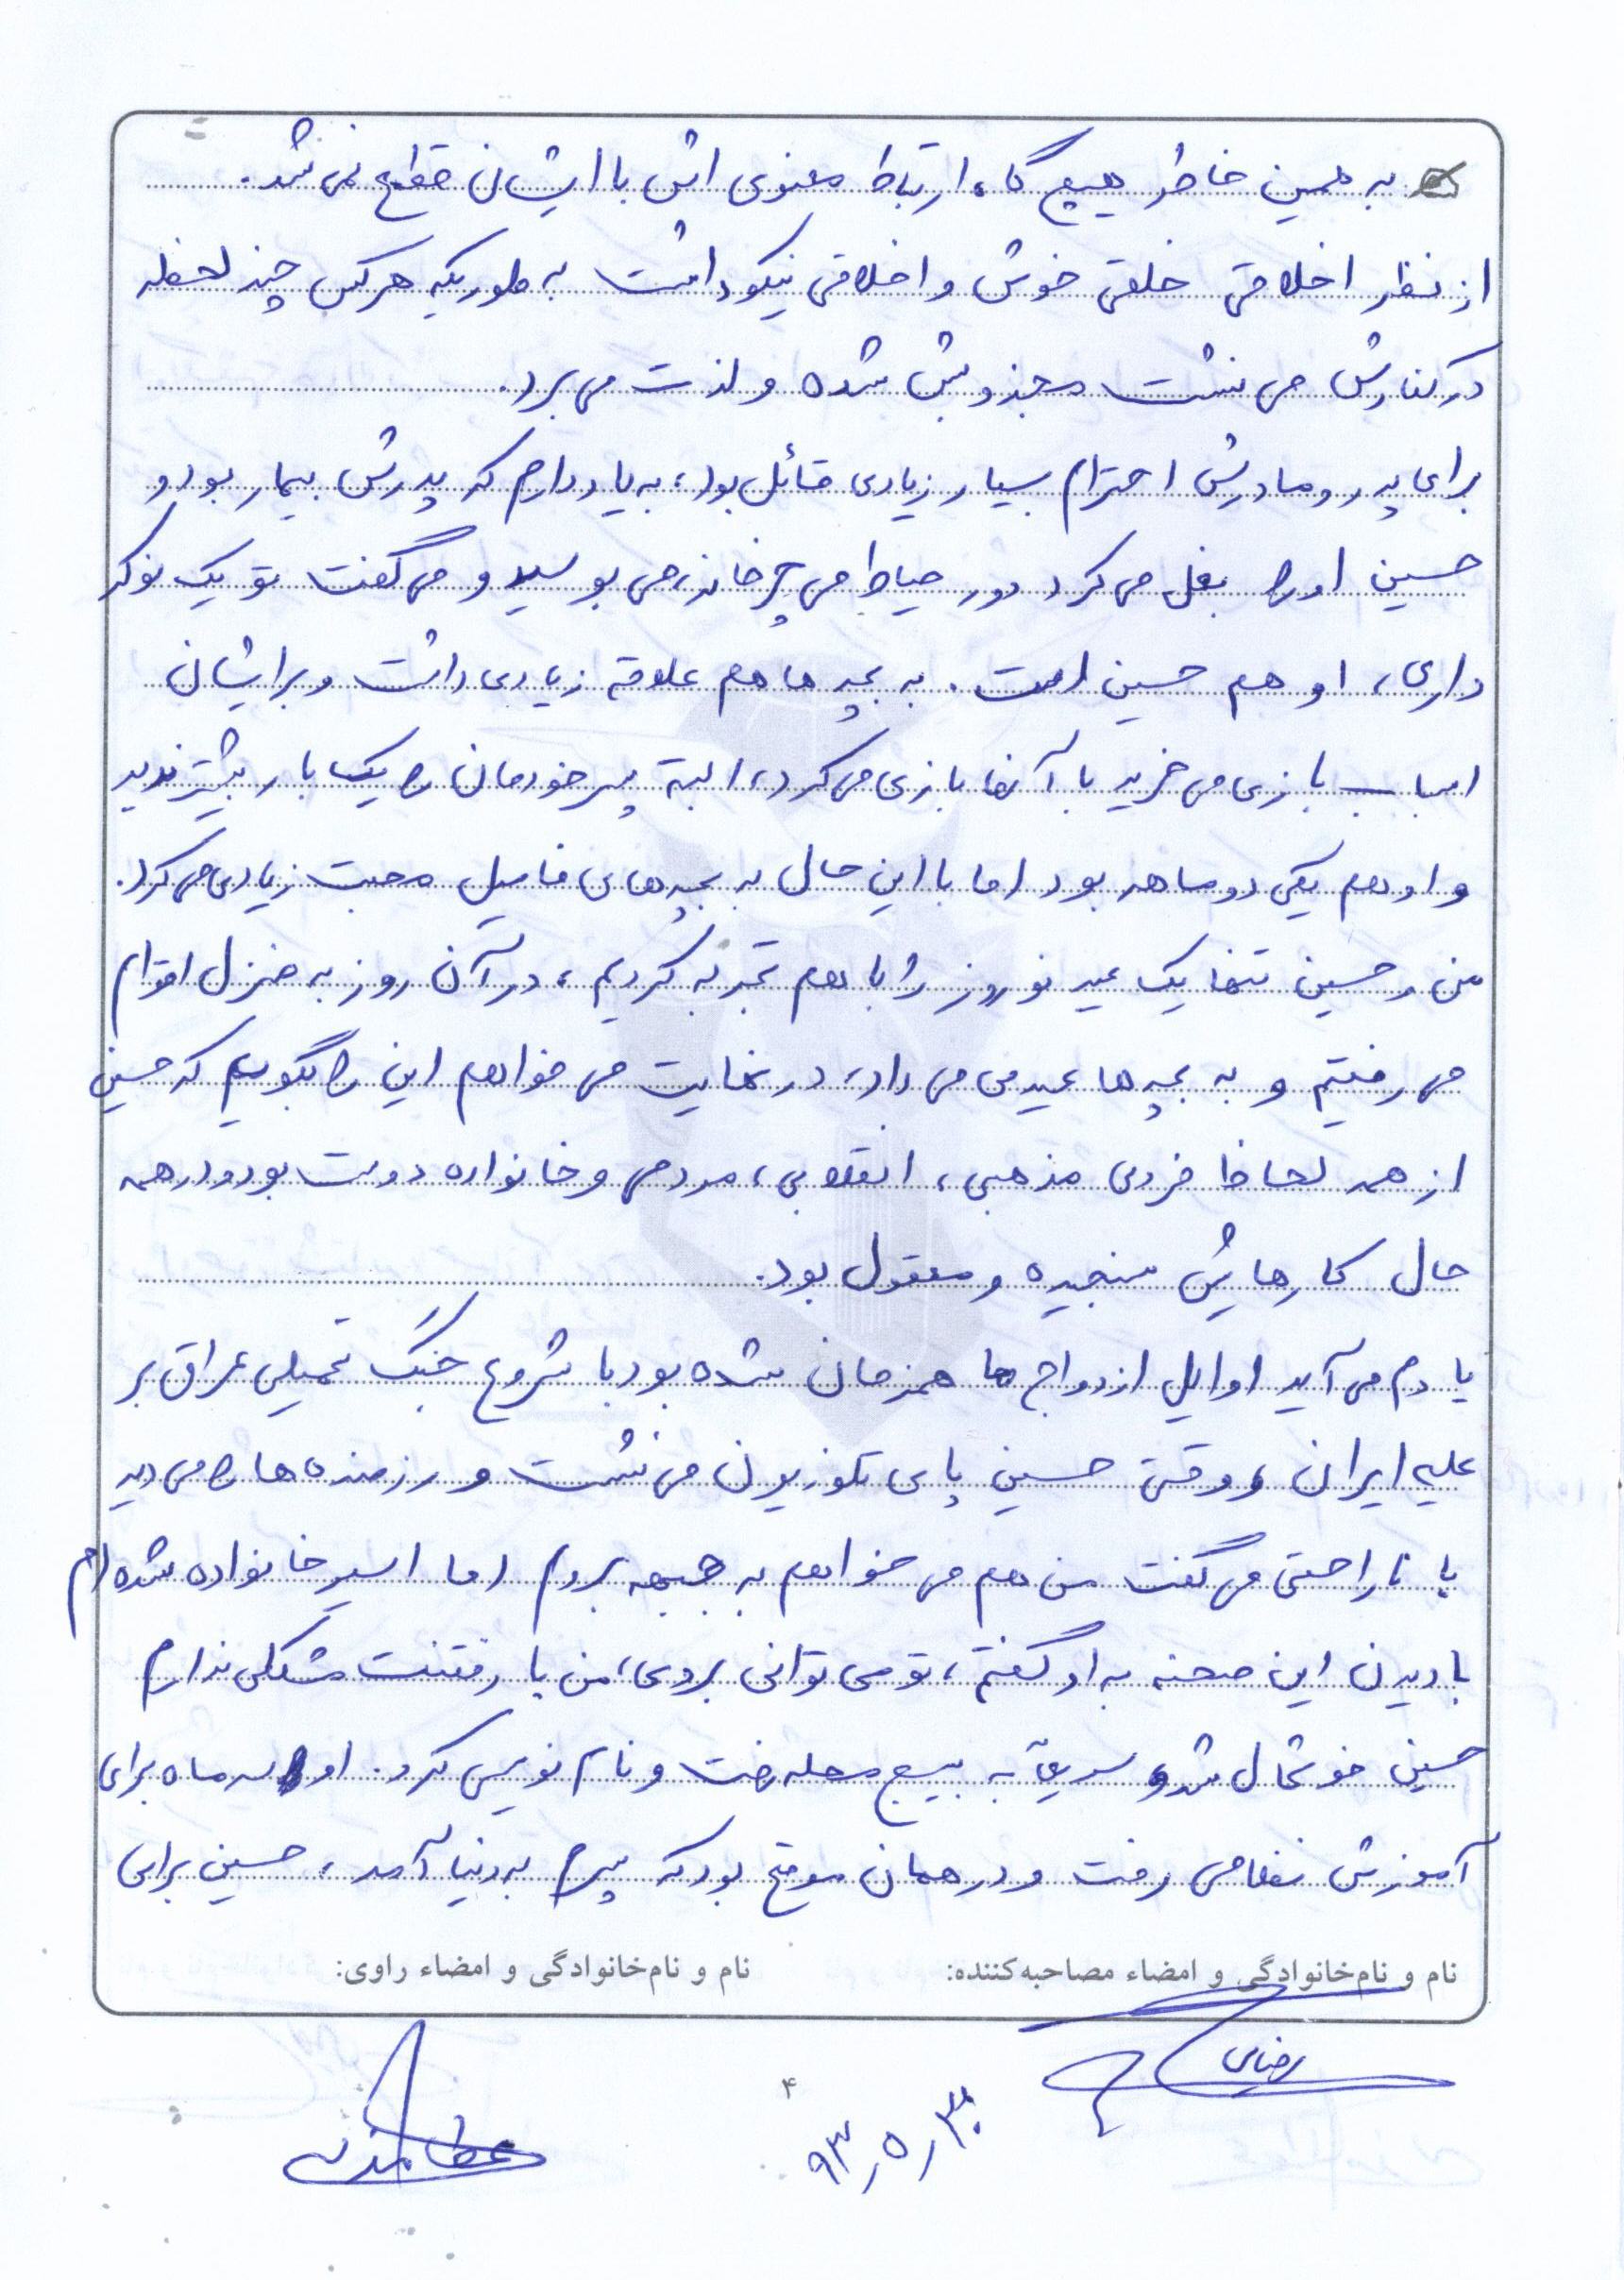 به همین خاطر هیچ گاه ارتباط معنوی اش با ایشان قطع نمی شد.
از نظر اخلاقی خلقی خوش و اخلاقی نیکو داشت به طوریکه هرکس چند لحظه
در کنارش می نشست مجذوبش شده و لذت می برد.
برای پدر و مادرش احترام بسیار زیادی قائل بود، به یاد دارم که پدرش بیمار بود و
حسین او را بغل می کرد دور حیاط می چرخاند، می بوسید و می گفت تو یک نوکر
داری، او هم حسین است. به بچه ها هم علاقه زیادی داشت و برایشان
اسباب بازی می خرید با آنها بازی می کرد، البته پسر خودمان را یک بار بیشتر ندید
و او هم یکی دو ماهه بود اما با این حال به بچه های فامیل محبت زیادی می کرد.
من و حسین تنها یک عید نوروز را با هم تجربه کردیم، در آن روز به منزل اقوام
می رفتیم و به بچه ها عیدی می داد، در نهایت می خواهم این را بگویم که حسین
از همه لحاظ فردی مذهبی، انقلابی، مردمی و خانواده دوست بود و در همه
حال کارهایش سنجیده و معقول بود.
یادم می آید اوایل ازدواج ما همزمان شده بود با شروع جنگ تحمیلی عراق بر
علیه ایران، وقتی حسین پای تلوزیون می نشست و رزمنده ها را می دید
با ناراحتی می گفت من هم می خواهم به جبهه بروم اما اسیر خانواده شده ام
با دیدن این صحنه به او گفتم، تو می توانی بروی، من با رفتنت مشکلی ندارم
حسین خوشحال شد و سریع به بسیج محله رفت و نام نویسی کرد. او سه ماه برای
آموزش نظامی رفت و در همان موقع بود که پسرم به دنیا آمد، حسین برای
نام و نام‌خانوادگی و امضاء مصاحبه‌کننده: نام و نام‌خانوادگی و امضاء راوی:
رضایی
۴
۹۳٫۵٫۳۰